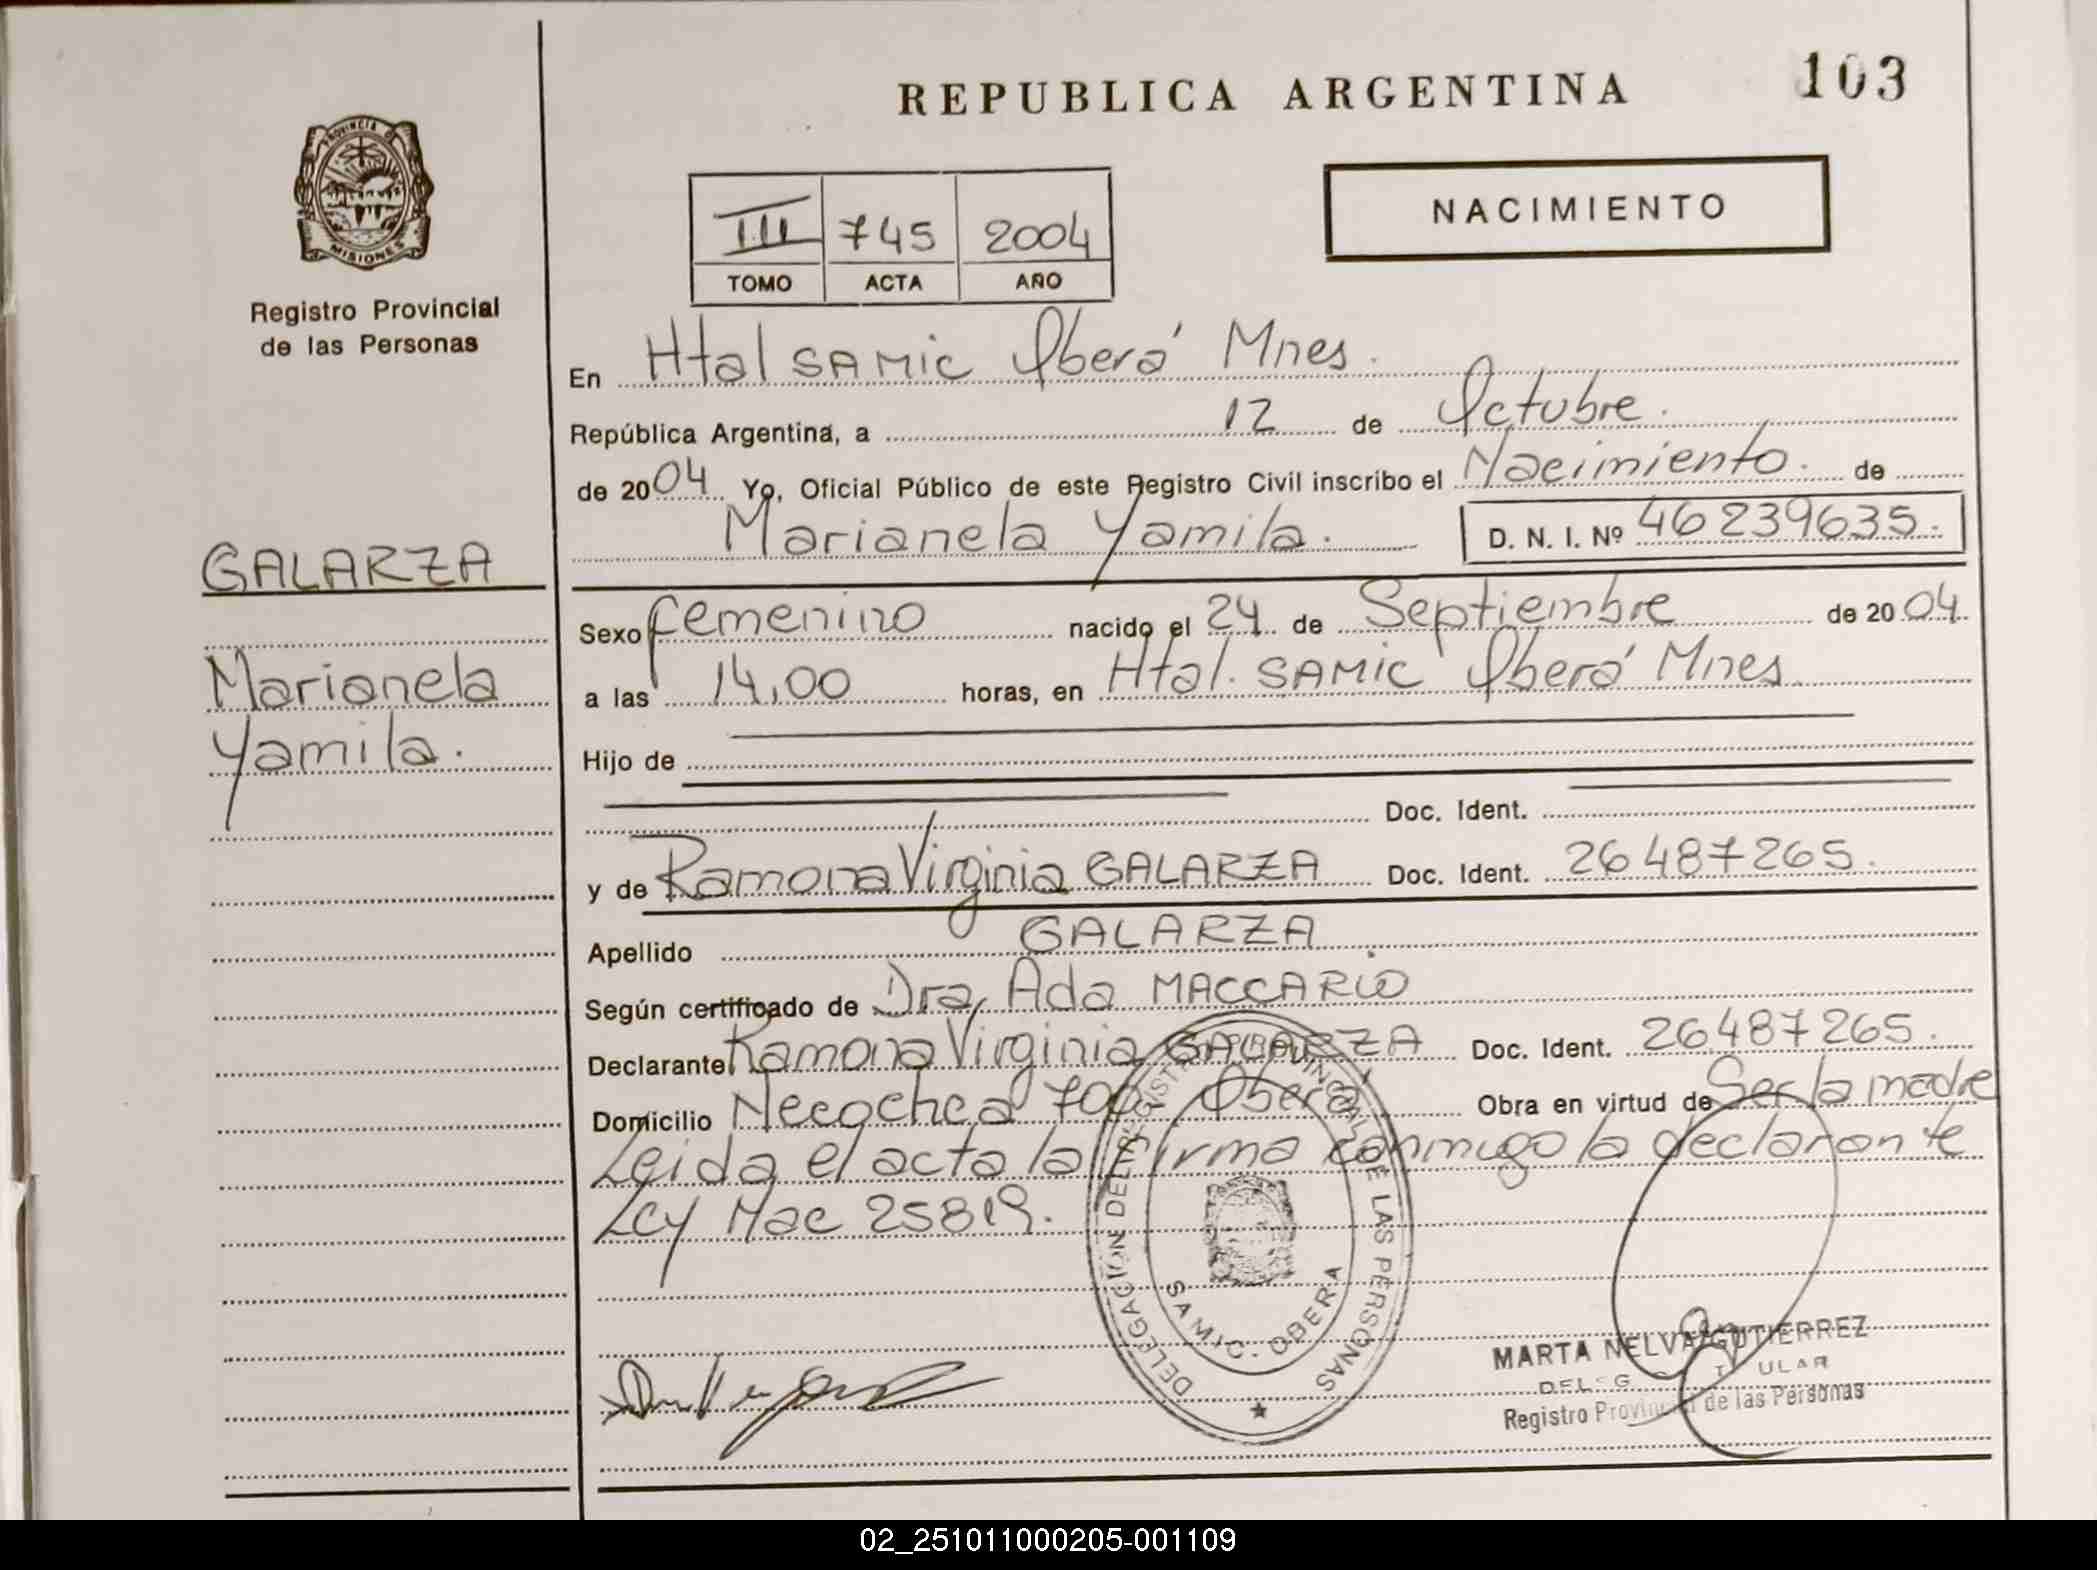 REPUBLICA ARGENTINA
103
PROVINCIA DE
MISIONES
Registro Provincial
de las Personas
III 745 2004
TOMO ACTA AÑO
NACIMIENTO
En Htal SAMIC Oberá Mnes.
República Argentina, a 12 de Octubre.
de 2004 Yo, Oficial Público de este Registro Civil inscribo el Nacimiento. de
Marianela Yamila. D. N. I. Nº 46239635.
GALARZA
Marianela
Yamila.
Sexo femenino nacido el 24 de Septiembre de 2004.
a las 14,00 horas, en Htal. SAMIC Oberá Mnes
Hijo de
Doc. Ident.
y de Ramona Virginia GALARZA Doc. Ident. 26487265.
Apellido GALARZA
Según certificado de Dra, Ada MACCARIO
Declarante Ramona Virginia GALARZA Doc. Ident. 26487265.
Domicilio Necochea 700- Oberá Obra en virtud de Ser la madre
Leida el acta la firma conmigo la declarante
Ley Nac 25819.
DELEGACION DEL REGISTRO PROVINCIAL DE LAS PERSONAS
SAMIC. OBERA
MARTA NELVA GUTIERREZ
Registro Provincial de las Personas
02_251011000205-001109